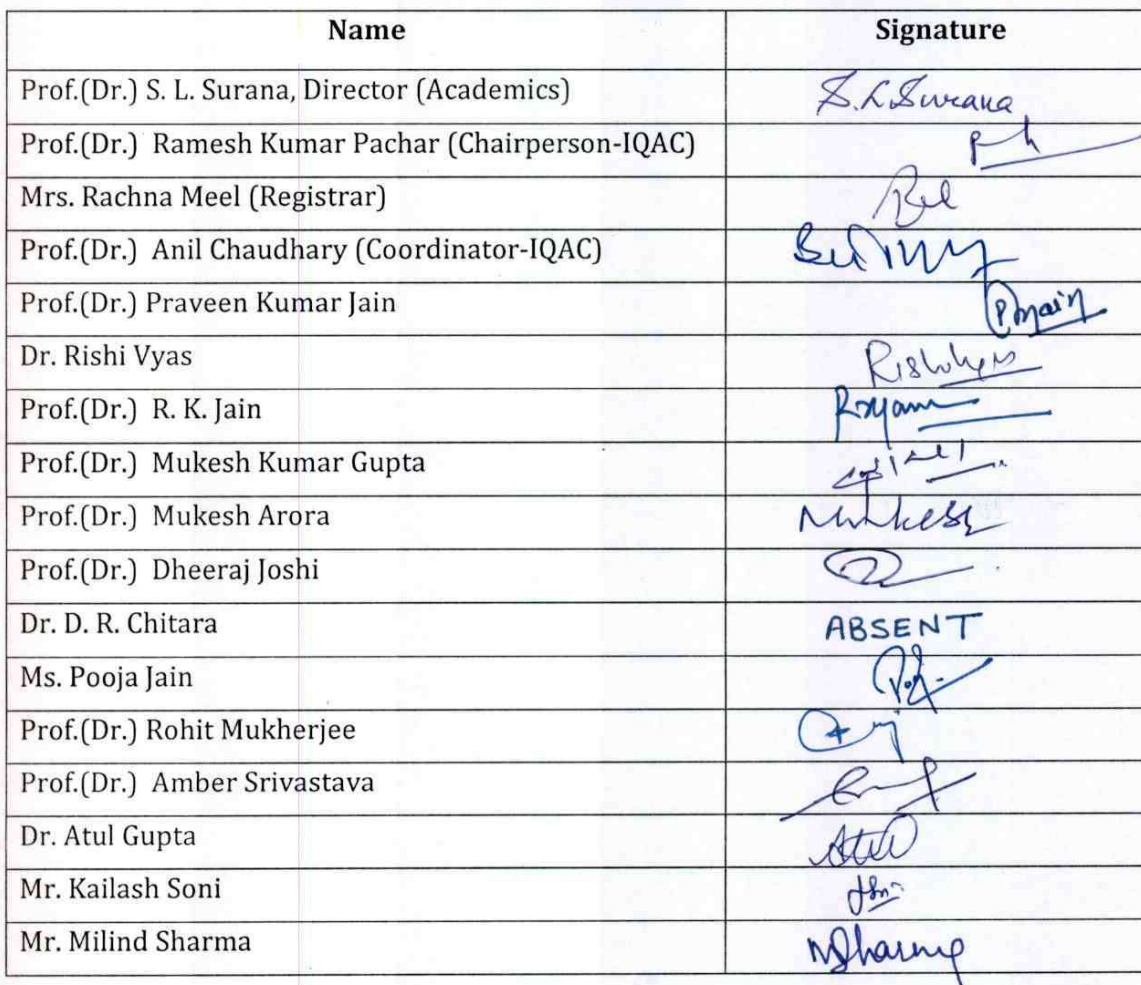 Name Signature
Prof.(Dr.) S. L. Surana, Director (Academics) S.L.Surana
Prof.(Dr.) Ramesh Kumar Pachar (Chairperson-IQAC)
Mrs. Rachna Meel (Registrar)
Prof.(Dr.) Anil Chaudhary (Coordinator-IQAC)
Prof.(Dr.) Praveen Kumar Jain PJain
Dr. Rishi Vyas
Prof.(Dr.) R. K. Jain
Prof.(Dr.) Mukesh Kumar Gupta
Prof.(Dr.) Mukesh Arora Mukesh
Prof.(Dr.) Dheeraj Joshi
Dr. D. R. Chitara ABSENT
Ms. Pooja Jain
Prof.(Dr.) Rohit Mukherjee
Prof.(Dr.) Amber Srivastava
Dr. Atul Gupta Atul
Mr. Kailash Soni
Mr. Milind Sharma MSharma